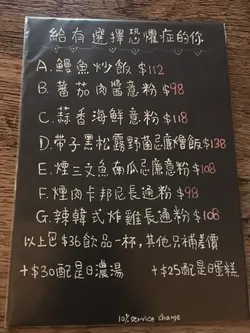 給有選擇恐懼症的你
A.鰻魚炒飯 $112
B.蕃茄肉醬意粉 $98
C.蒜香海鮮意粉 $118
D.帶子黑松露野菌忌廉燴飯$138
E.煙三文魚南瓜忌廉意粉 $108
F.煙肉卡邦尼長通粉 $98
G.辣韓式炸雞長通粉 $108
以上包$36飲品一杯,其他只補差價
+$30配是日濃湯 +$25配是日蛋糕
10% service charge